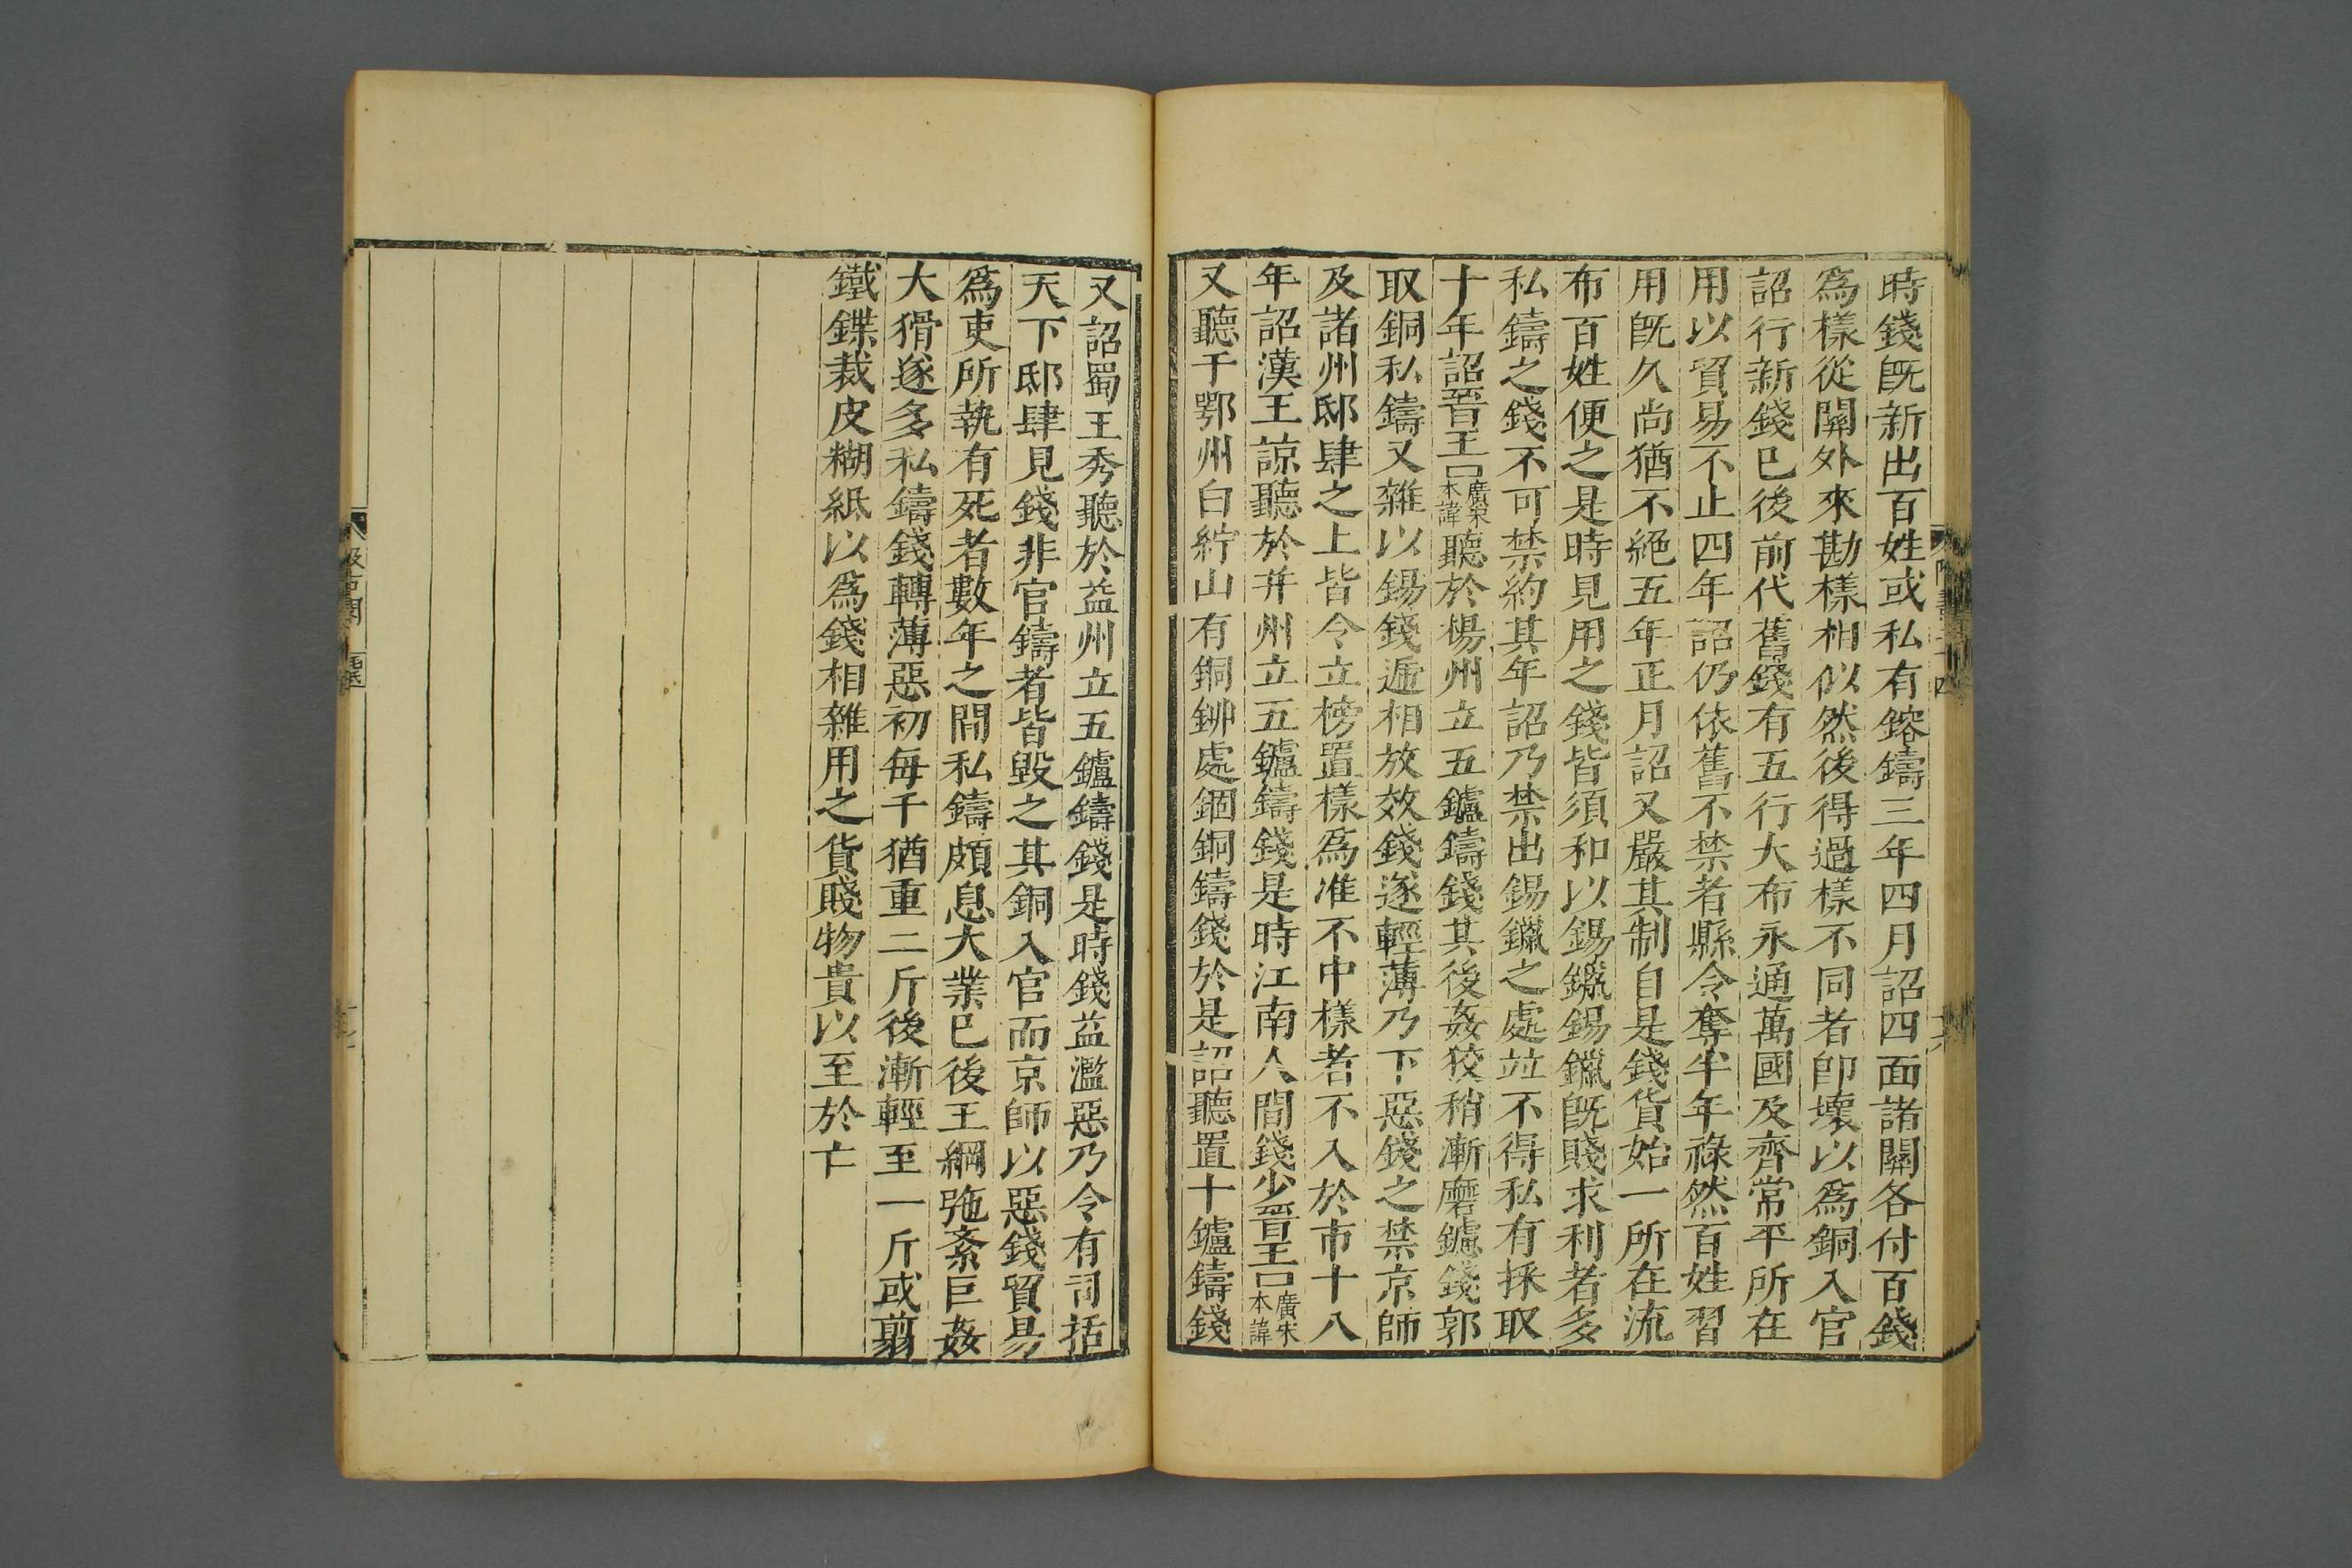 時錢旣新出百姓或私有鎔鑄三年四月詔四面諸關各付百錢
爲樣從關外來勘樣相似然後得過樣不同者卽壞以爲銅入官
詔行新錢已後前代舊錢有五行大布永通萬國及齊常平所在
用以貿易不止四年詔仍依舊不禁者縣令奪半年祿然百姓習
用旣久尚猶不絕五年正月詔又嚴其制自是錢貨始一所在流
布百姓便之是時見用之錢皆須和以錫鑞錫鑞旣賤求利者多
私鑄之錢不可禁約其年詔乃禁出錫鑞之處竝不得私有採取
十年詔晉王囗廣宋本諱聽於楊州立五鑪鑄錢其後姦狡稍漸磨鑢錢郭
取銅私鑄又雜以錫錢遞相放效錢遂輕薄乃下惡錢之禁京師
及諸州邸肆之上皆令立榜置樣爲准不中樣者不入於市十八
年詔漢王諒聽於幷州立五鑪鑄錢是時江南人間錢少晉王囗廣宋本諱
又聽于鄂州白紵山有銅鉚處錮銅鑄錢於是詔聽置十鑪鑄錢
又詔蜀王秀聽於益州立五鑪鑄錢是時錢益濫惡乃令有司括
天下邸肆見錢非官鑄者皆毀之其銅入官而京師以惡錢貿易
爲吏所執有死者數年之間私鑄頗息大業已後王綱弛紊巨姦
大猾遂多私鑄錢轉薄惡初每千猶重二斤後漸輕至一斤或翦
鐵鍱裁皮糊紙以爲錢相雜用之貨賤物貴以至於亡